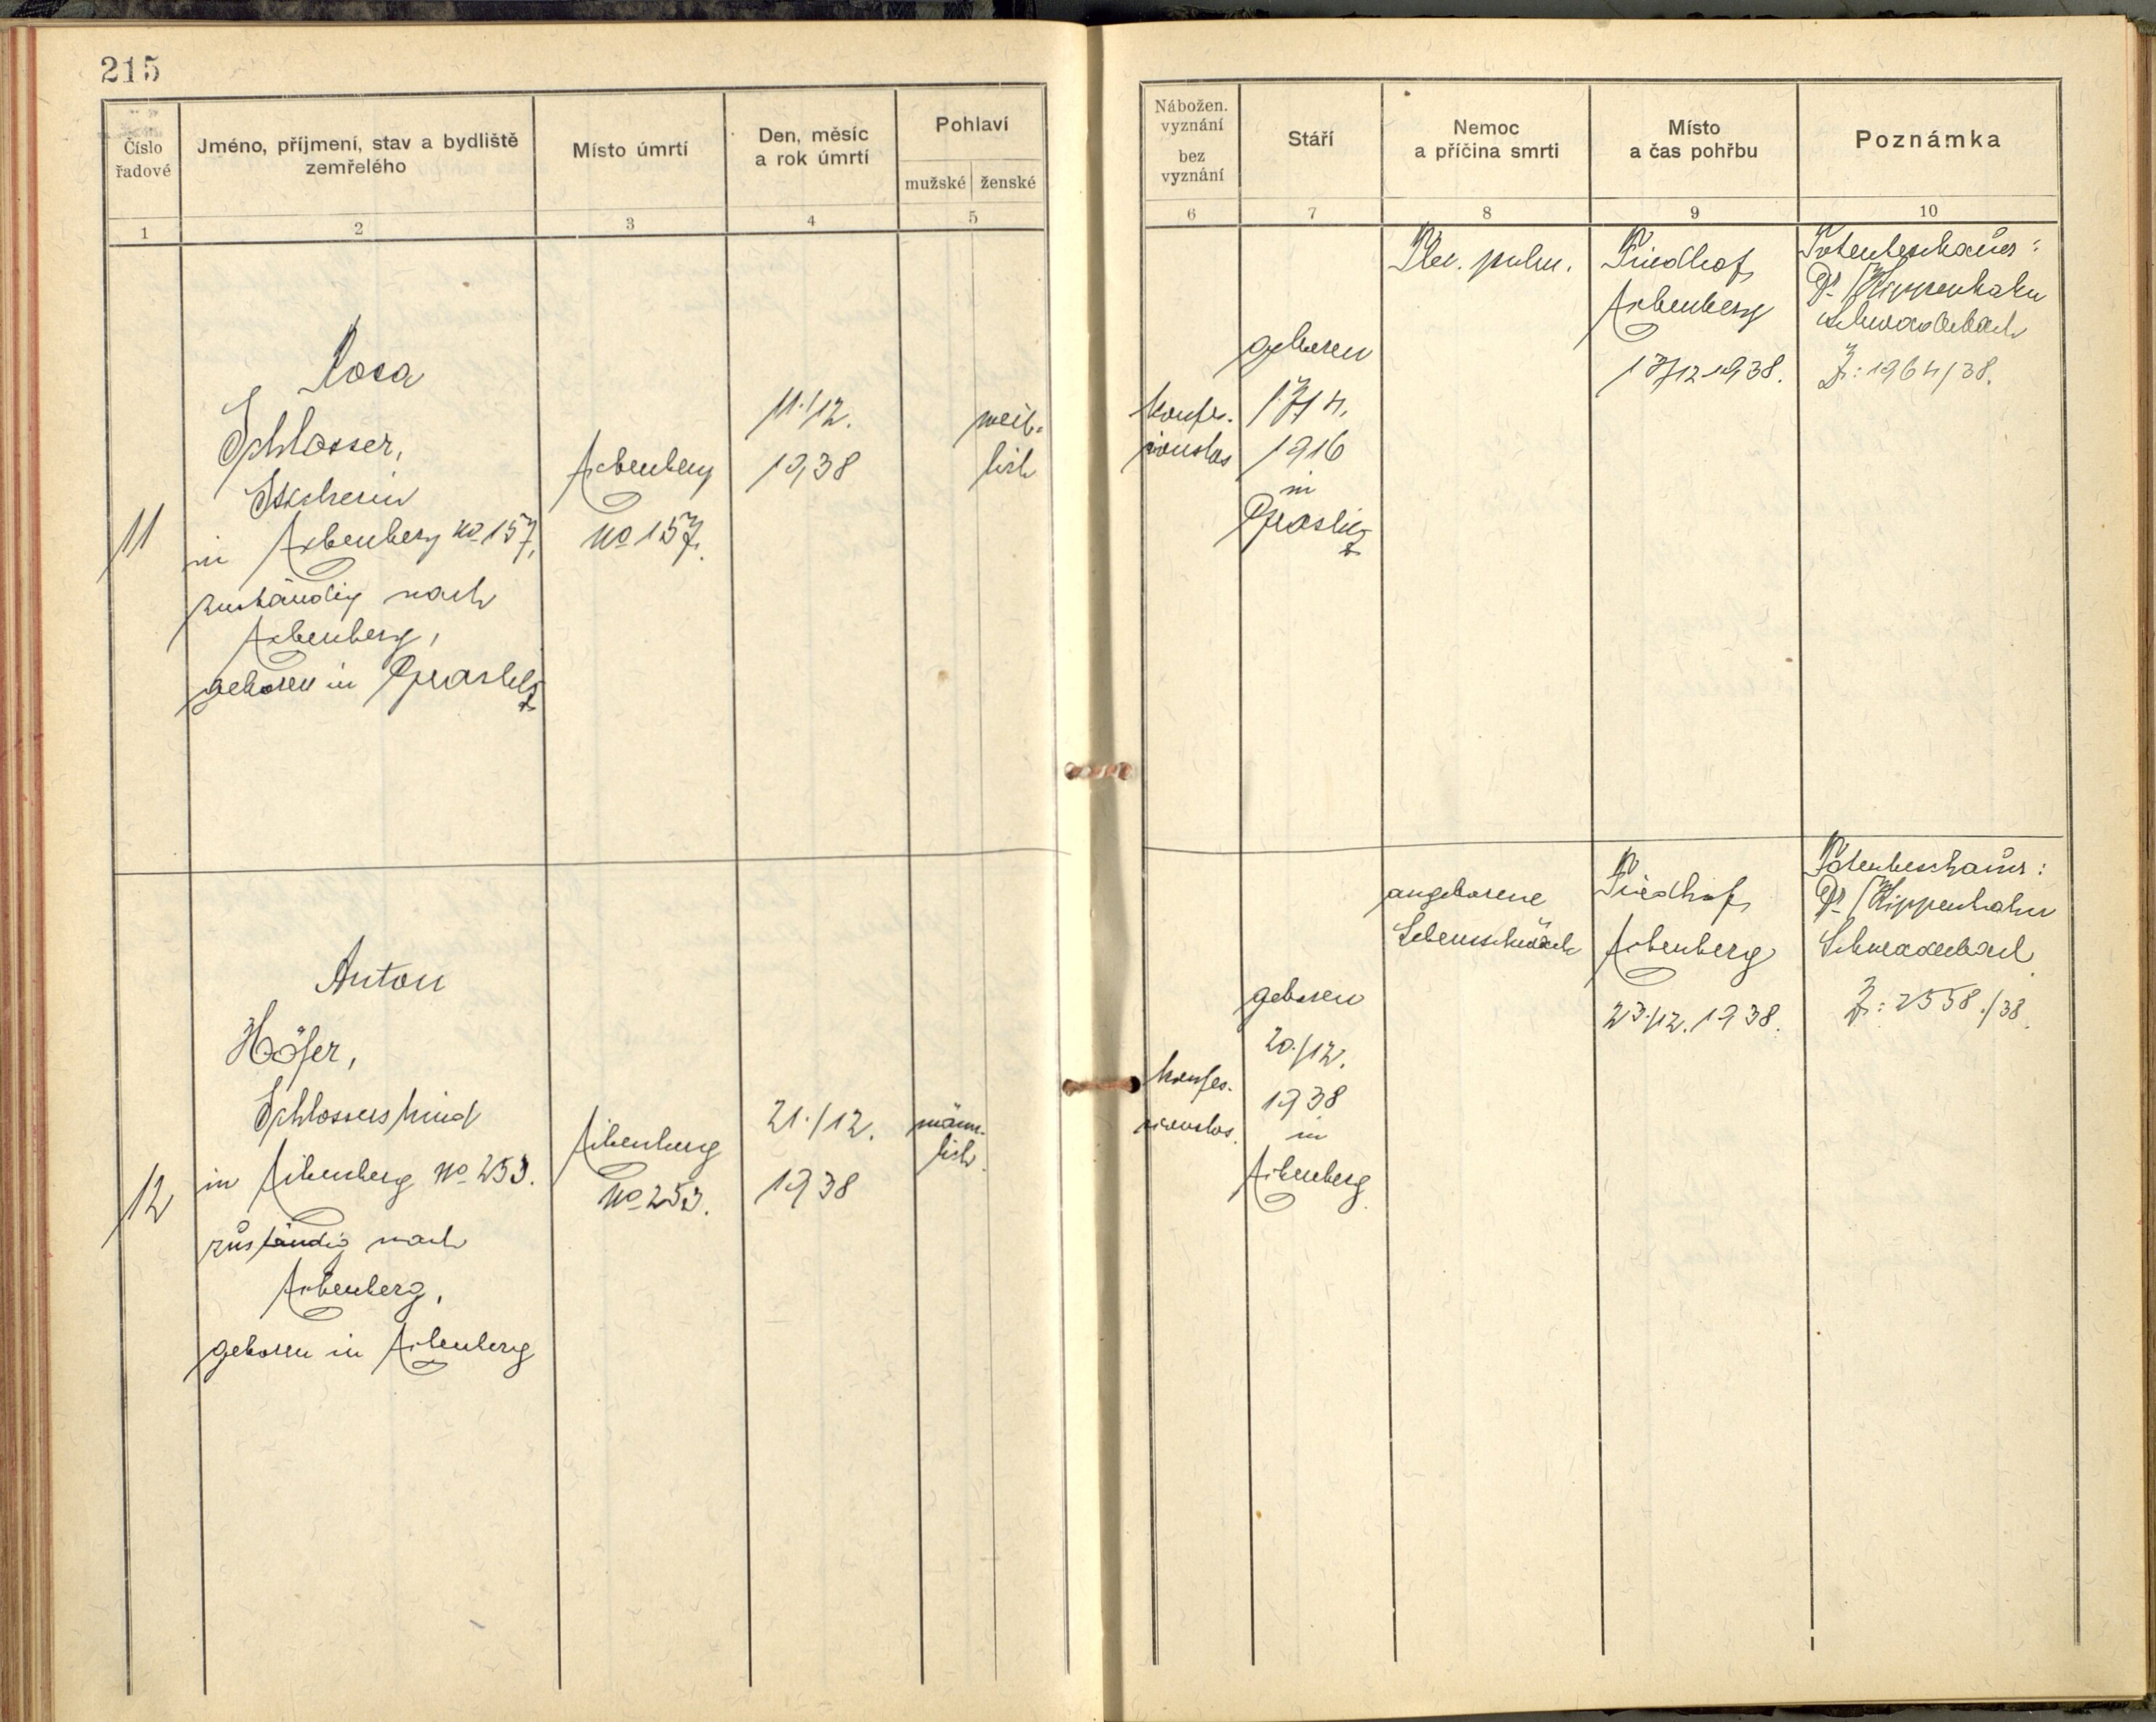 215
Číslo
řadové
Jméno, příjmení, stav a bydliště
zemřelého
Místo úmrtí
Den, měsíc
a rok úmrtí
Pohlaví
mužské
ženské
1
2
3
4
5
11
Rosa
Schlosser,
in Aibenberg No 157,
zuständig nach
Aibenberg,
geboren in Graslitz
Aibenberg
No 157.
11./12.
1938
weib-
lich
12
Anton
Höfer,
Schlosserskind
in Aibenberg No 253.
zuständig nach
Aibenberg,
geboren in Aibenberg
Aibenberg
No 253.
21./12.
1938
männ-
lich.
Nábožen.
vyznání
bez
vyznání
Stáří
Nemoc
a příčina smrti
Místo
a čas pohřbu
Poznámka
6
7
8
9
10
konfes-
sionslos
geboren
1916
in
Graslitz
pulm.
Friedhof
Aibenberg
1938.
Totenbeschauer:
Dr. Klippenhahn
Schwaderbach
Z: 1964/38.
konfes-
sionslos.
geboren
20./12.
1938
in
Aibenberg
angeborene
Lebensschwäche
Friedhof
Aibenberg
23./12. 1938.
Totenbeschauer:
Dr. Klippenhahn
Schwaderbach
Z: 2558./38.